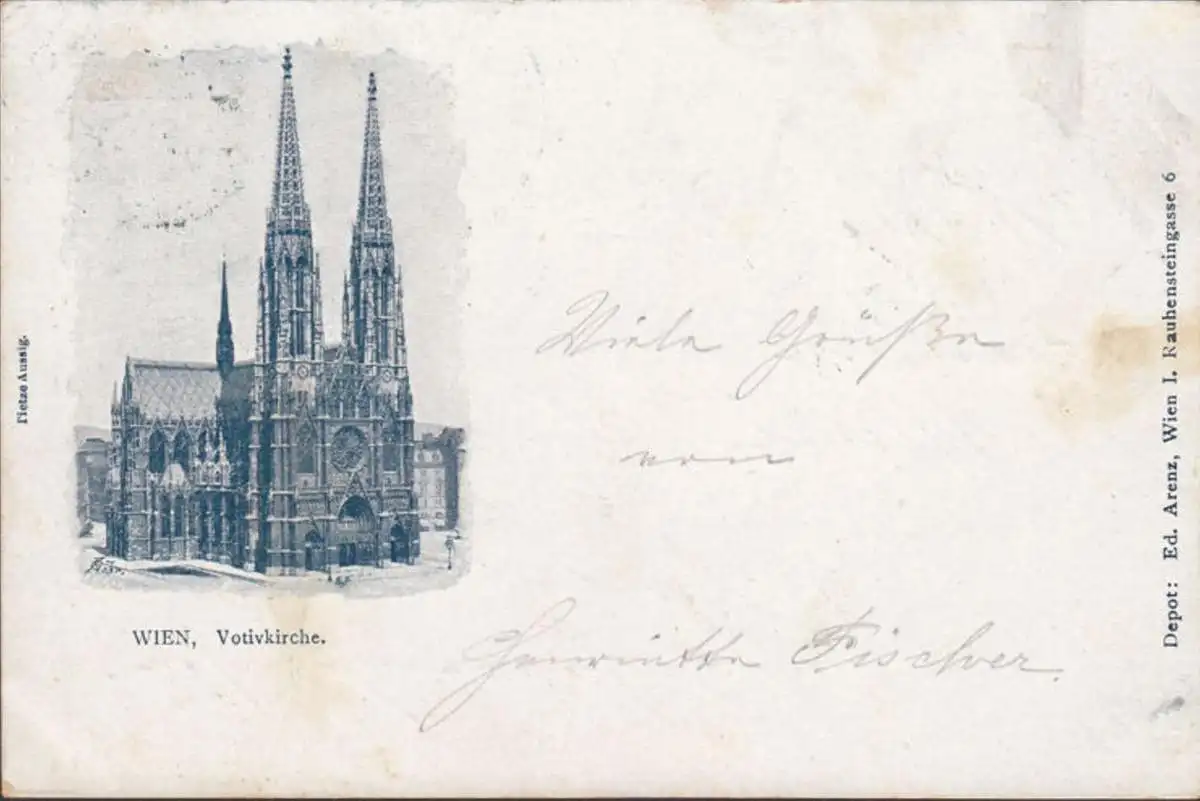 Pietze Aussig.
WIEN, Votivkirche.
Viele Grüße
von
Henriette Fischer.
Depot: Ed. Arenz, Wien I. Rauhensteingasse 6